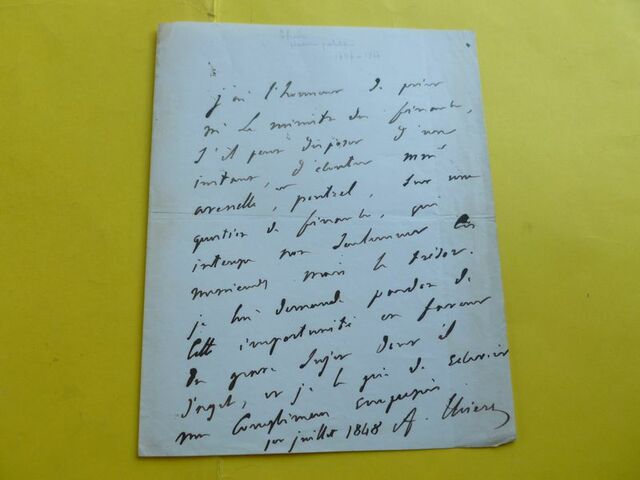 Thiers
homme politique
j'ai l'honneur de prier
m le ministre des finances,
s'il peut disposer d'un
instant, d'écouter mm
et pentrel, sur une
question de finances, qui
interesse non seulement ces
messieurs mais le trésor.
je lui demande pardon de
cette importunité en faveur
du grave sujet dont il
s'agit, et je le prie de recevoir
mes compliments empressés
1er juillet 1848 A. Thiers